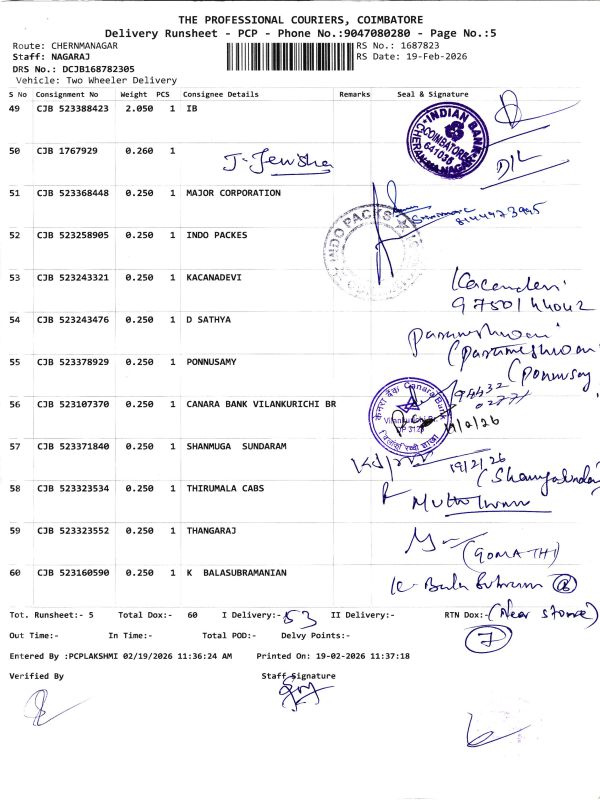 THE PROFESSIONAL COURIERS, COIMBATORE
Delivery Runsheet - PCP - Phone No.:9047080280 - Page No.:5
Route: CHERNMANAGAR
RS No.: 1687823
Staff: NAGARAJ
RS Date: 19-Feb-2026
DRS No.: DCJB168782305
Vehicle: Two Wheeler Delivery
S No Consignment No Weight PCS Consignee Details Remarks Seal & Signature
49 CJB 523388423 2.050 1 IB
INDIAN BANK
COIMBATORE
641035
50 CJB 1767929 0.260 1
51 CJB 523368448 0.250 1 MAJOR CORPORATION
52 CJB 523258905 0.250 1 INDO PACKES
INDO PACKS
53 CJB 523243321 0.250 1 KACANADEVI
Kacandevi
9750144042
54 CJB 523243476 0.250 1 D SATHYA
Parameshwari
(Parameshwari
55 CJB 523378929 0.250 1 PONNUSAMY
(Ponnusay
56 CJB 523107370 0.250 1 CANARA BANK VILANKURICHI BR
केनरा बैंक Canara Bank
Vilankurichi Br.
19/2/26
57 CJB 523371840 0.250 1 SHANMUGA SUNDARAM
19/2/26
58 CJB 523323534 0.250 1 THIRUMALA CABS
59 CJB 523323552 0.250 1 THANGARAJ
(GOMATHI)
60 CJB 523160590 0.250 1 K BALASUBRAMANIAN
Tot. Runsheet:- 5 Total Dox:- 60 I Delivery:- 53 II Delivery:- RTN Dox:- (Near stone)
7
Out Time:- In Time:- Total POD:- Delvy Points:-
Entered By :PCPLAKSHMI 02/19/2026 11:36:24 AM Printed On: 19-02-2026 11:37:18
Verified By Staff Signature